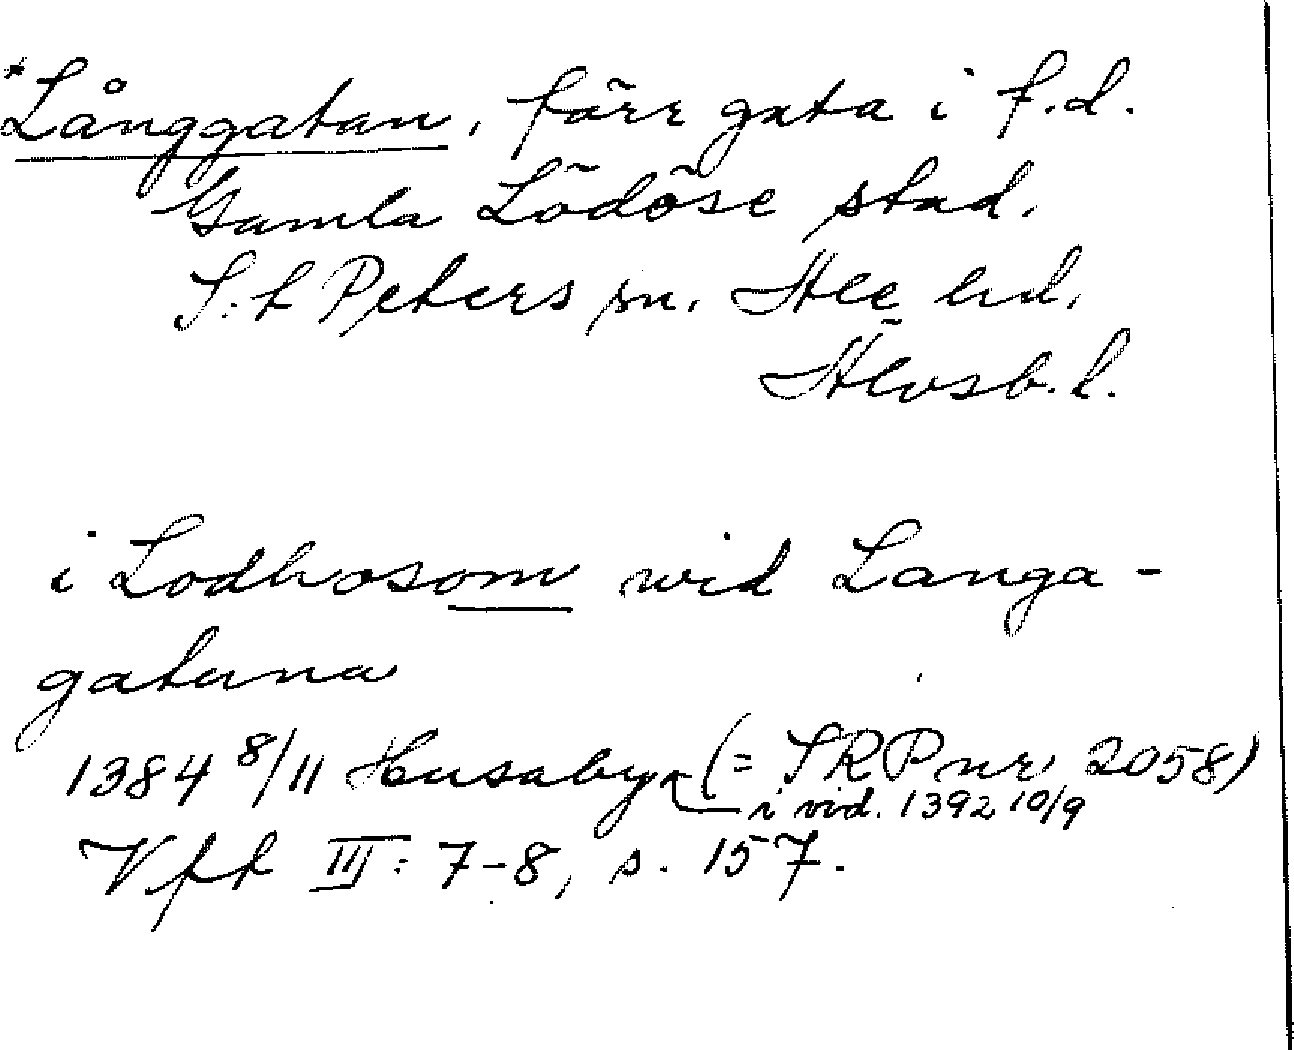 *Långgatan, förr gata i f.d.
Gamla Lödöse stad.
S:t Peters sn. Ale hd.
Älvsb. l.
i Lodhosom wid Langa-
gatuna
1384 8/11 Husaby (= SRP nr 2058)
i vid. 1392 10/9
Vfft III: 7-8, s. 157.